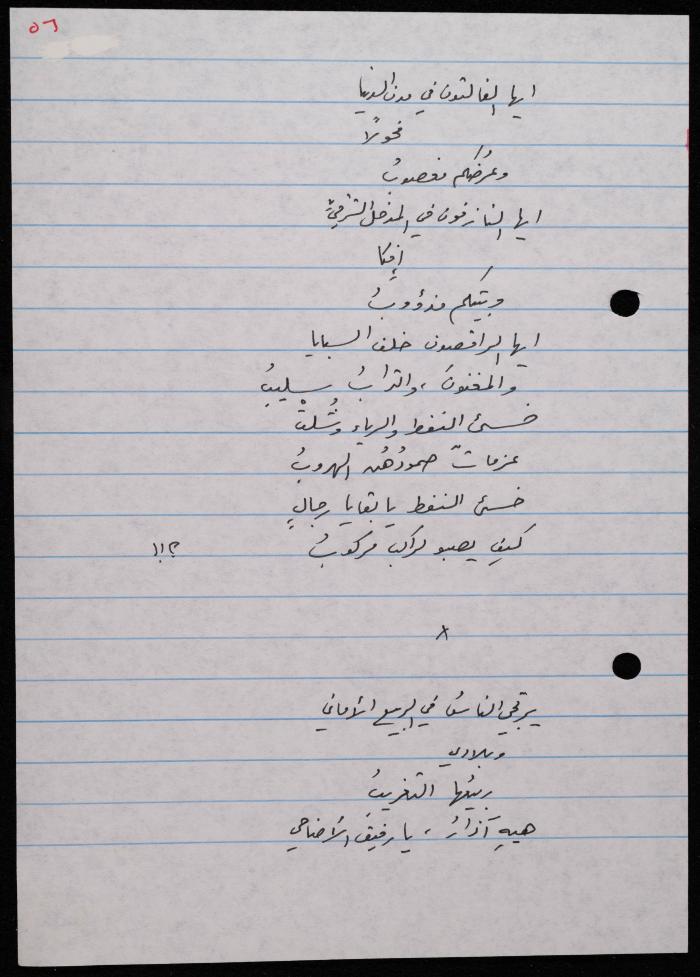 ٥٦
ايها الفالتون في مدن الدنيا
فحولاً
وعرضُكم مغصوبُ
ايها النازفون في المدخل الشرقيِّ
إفكا
وبَيتكم منؤوبُ
ايها الراقصون خلف السبايا
والمغنونَ، والترابُ سليبُ
خسئ النفط والرياء وشُلتْ
عزماتٌ صمودُهُن الهروبُ
خسئ النفط يا بقايا رجالٍ
كيف يصبو لراكبٍ مركوبُ ؟!!
x
يرتجي الناسُ في الربيع الأماني
وبلادي
ربيعُها التغريبُ
هيهِ آذارُ، يا رفيقَ الأضاحي